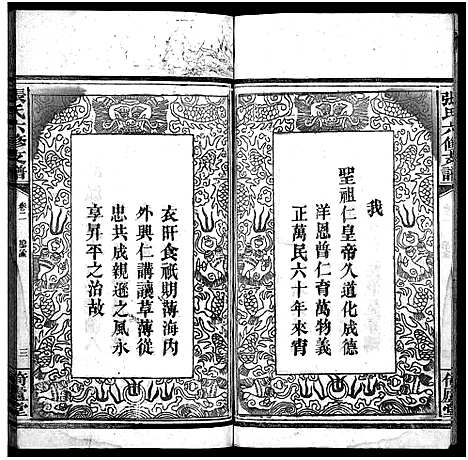 張氏六修支譜
我
聖祖仁皇帝久道化成德
洋恩普仁育萬物義
正萬民六十年來宵
衣旰食祇期薄海內
外興仁講讓革薄從
忠共成親遜之風永
享昇平之治故
張氏六修支譜
卷二
三